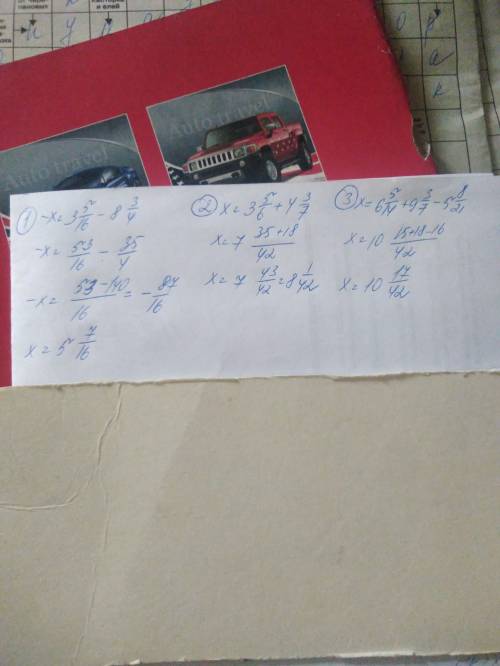 Auto travel
Auto travel
① -x = 3 5/16 - 8 3/4
-x = 53/16 - 35/4
-x = (53-140)/16 = - 87/16
x = 5 7/16
② x = 3 5/6 + 4 3/7
x = 7 (35+18)/42
x = 7 43/42 = 8 1/42
③ x = 6 5/14 + 9 3/7 - 5 8/21
x = 10 (15+18-16)/42
x = 10 17/42